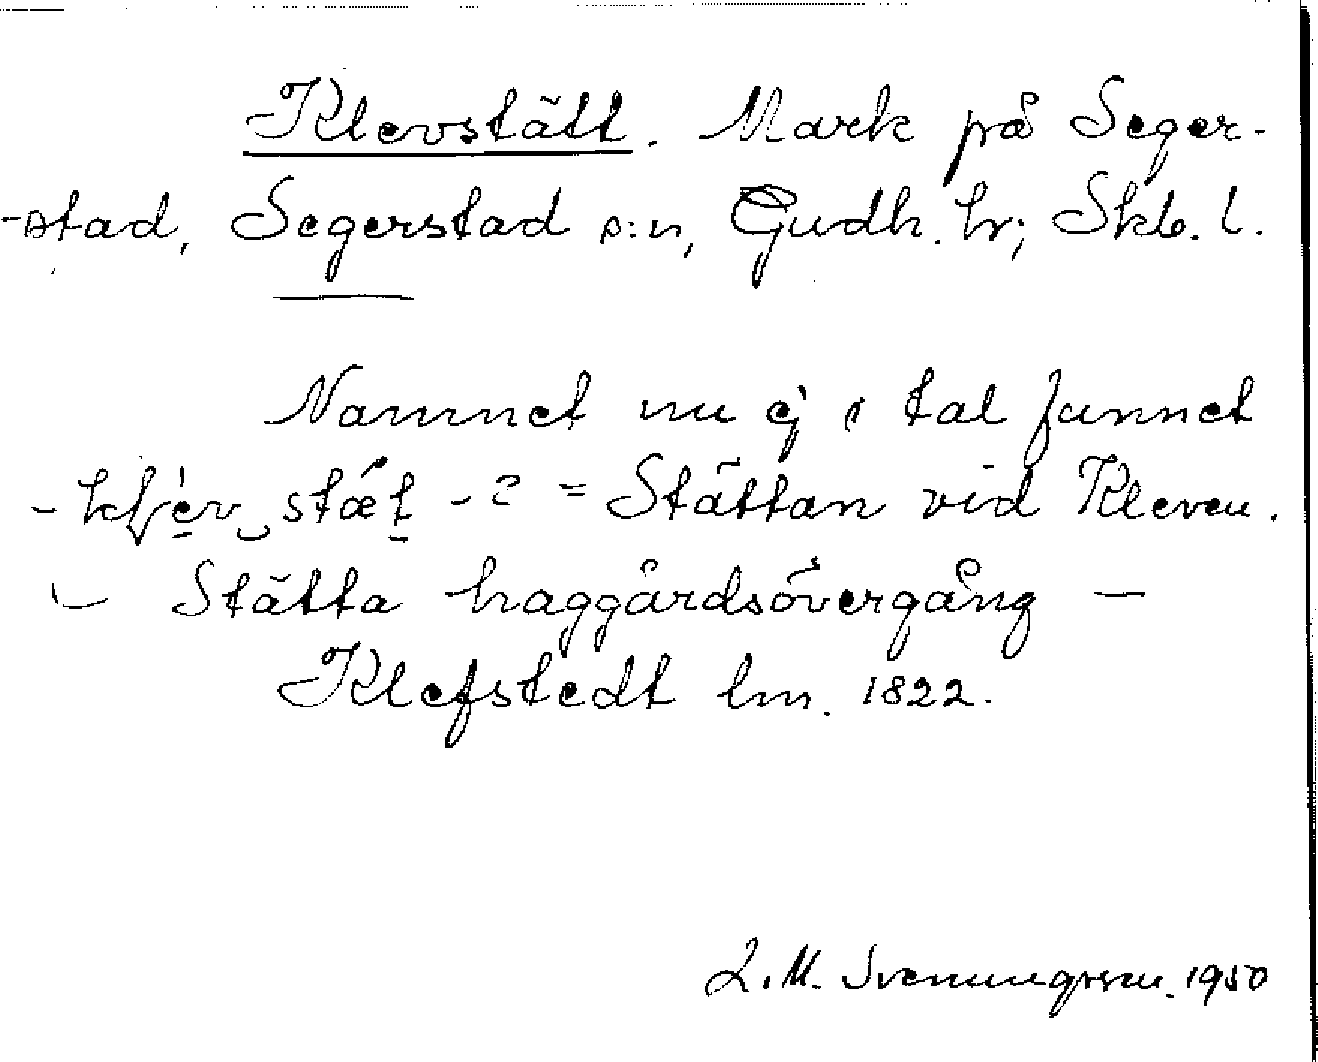 Klevstätt. Mark på Seger-
-stad, Segerstad s:n, Gudh. hr; Skb. l.
Namnet nu ej i tal funnet
- stæt - ? = Stättan vid Kleven.
Stätta haggårdsövergång —
Klefstedt lm. 1822.
L. M. Svenungsson. 1950